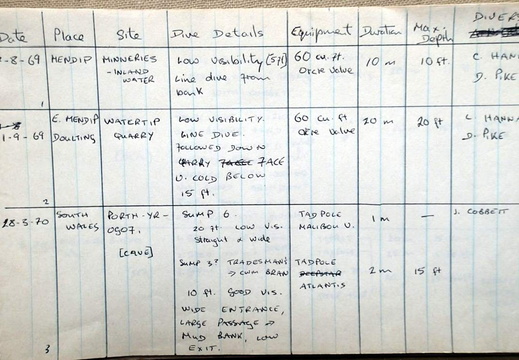 Date Place Site Dive Details Equipment Duration Max. Depth DIVERS
-8-69 MENDIP MINNERIES LOW VISIBILITY (5ft) 60 cu. ft. 10 m 10 ft. C. HANN
- INLAND Line dive from valve D. PIKE
WATER bank
1
E. MENDIP WATERTIP LOW VISIBILITY. 60 cu ft 20 m 20 ft C HANNA
1-9-69 DOULTING QUARRY LINE DIVE. valve D. PIKE
FOLLOWED DOWN
QUARRY FACE
V. COLD BELOW
15 ft.
2
28-3-70 SOUTH PORTH-YR- SUMP 6. TADPOLE 1 m — J. COBBETT
WALES OGOF. 20 ft LOW VIS. MALIBOU V.
Straight & wide
[CAVE]
SUMP 3? TRADESMAN'S TADPOLE 2 m 15 ft
→ CWM BRAN DEEPSTAR
10 ft. GOOD VIS. ATLANTIS
WIDE ENTRANCE,
LARGE PASSAGE →
MUD BANK, LOW
EXIT.
3